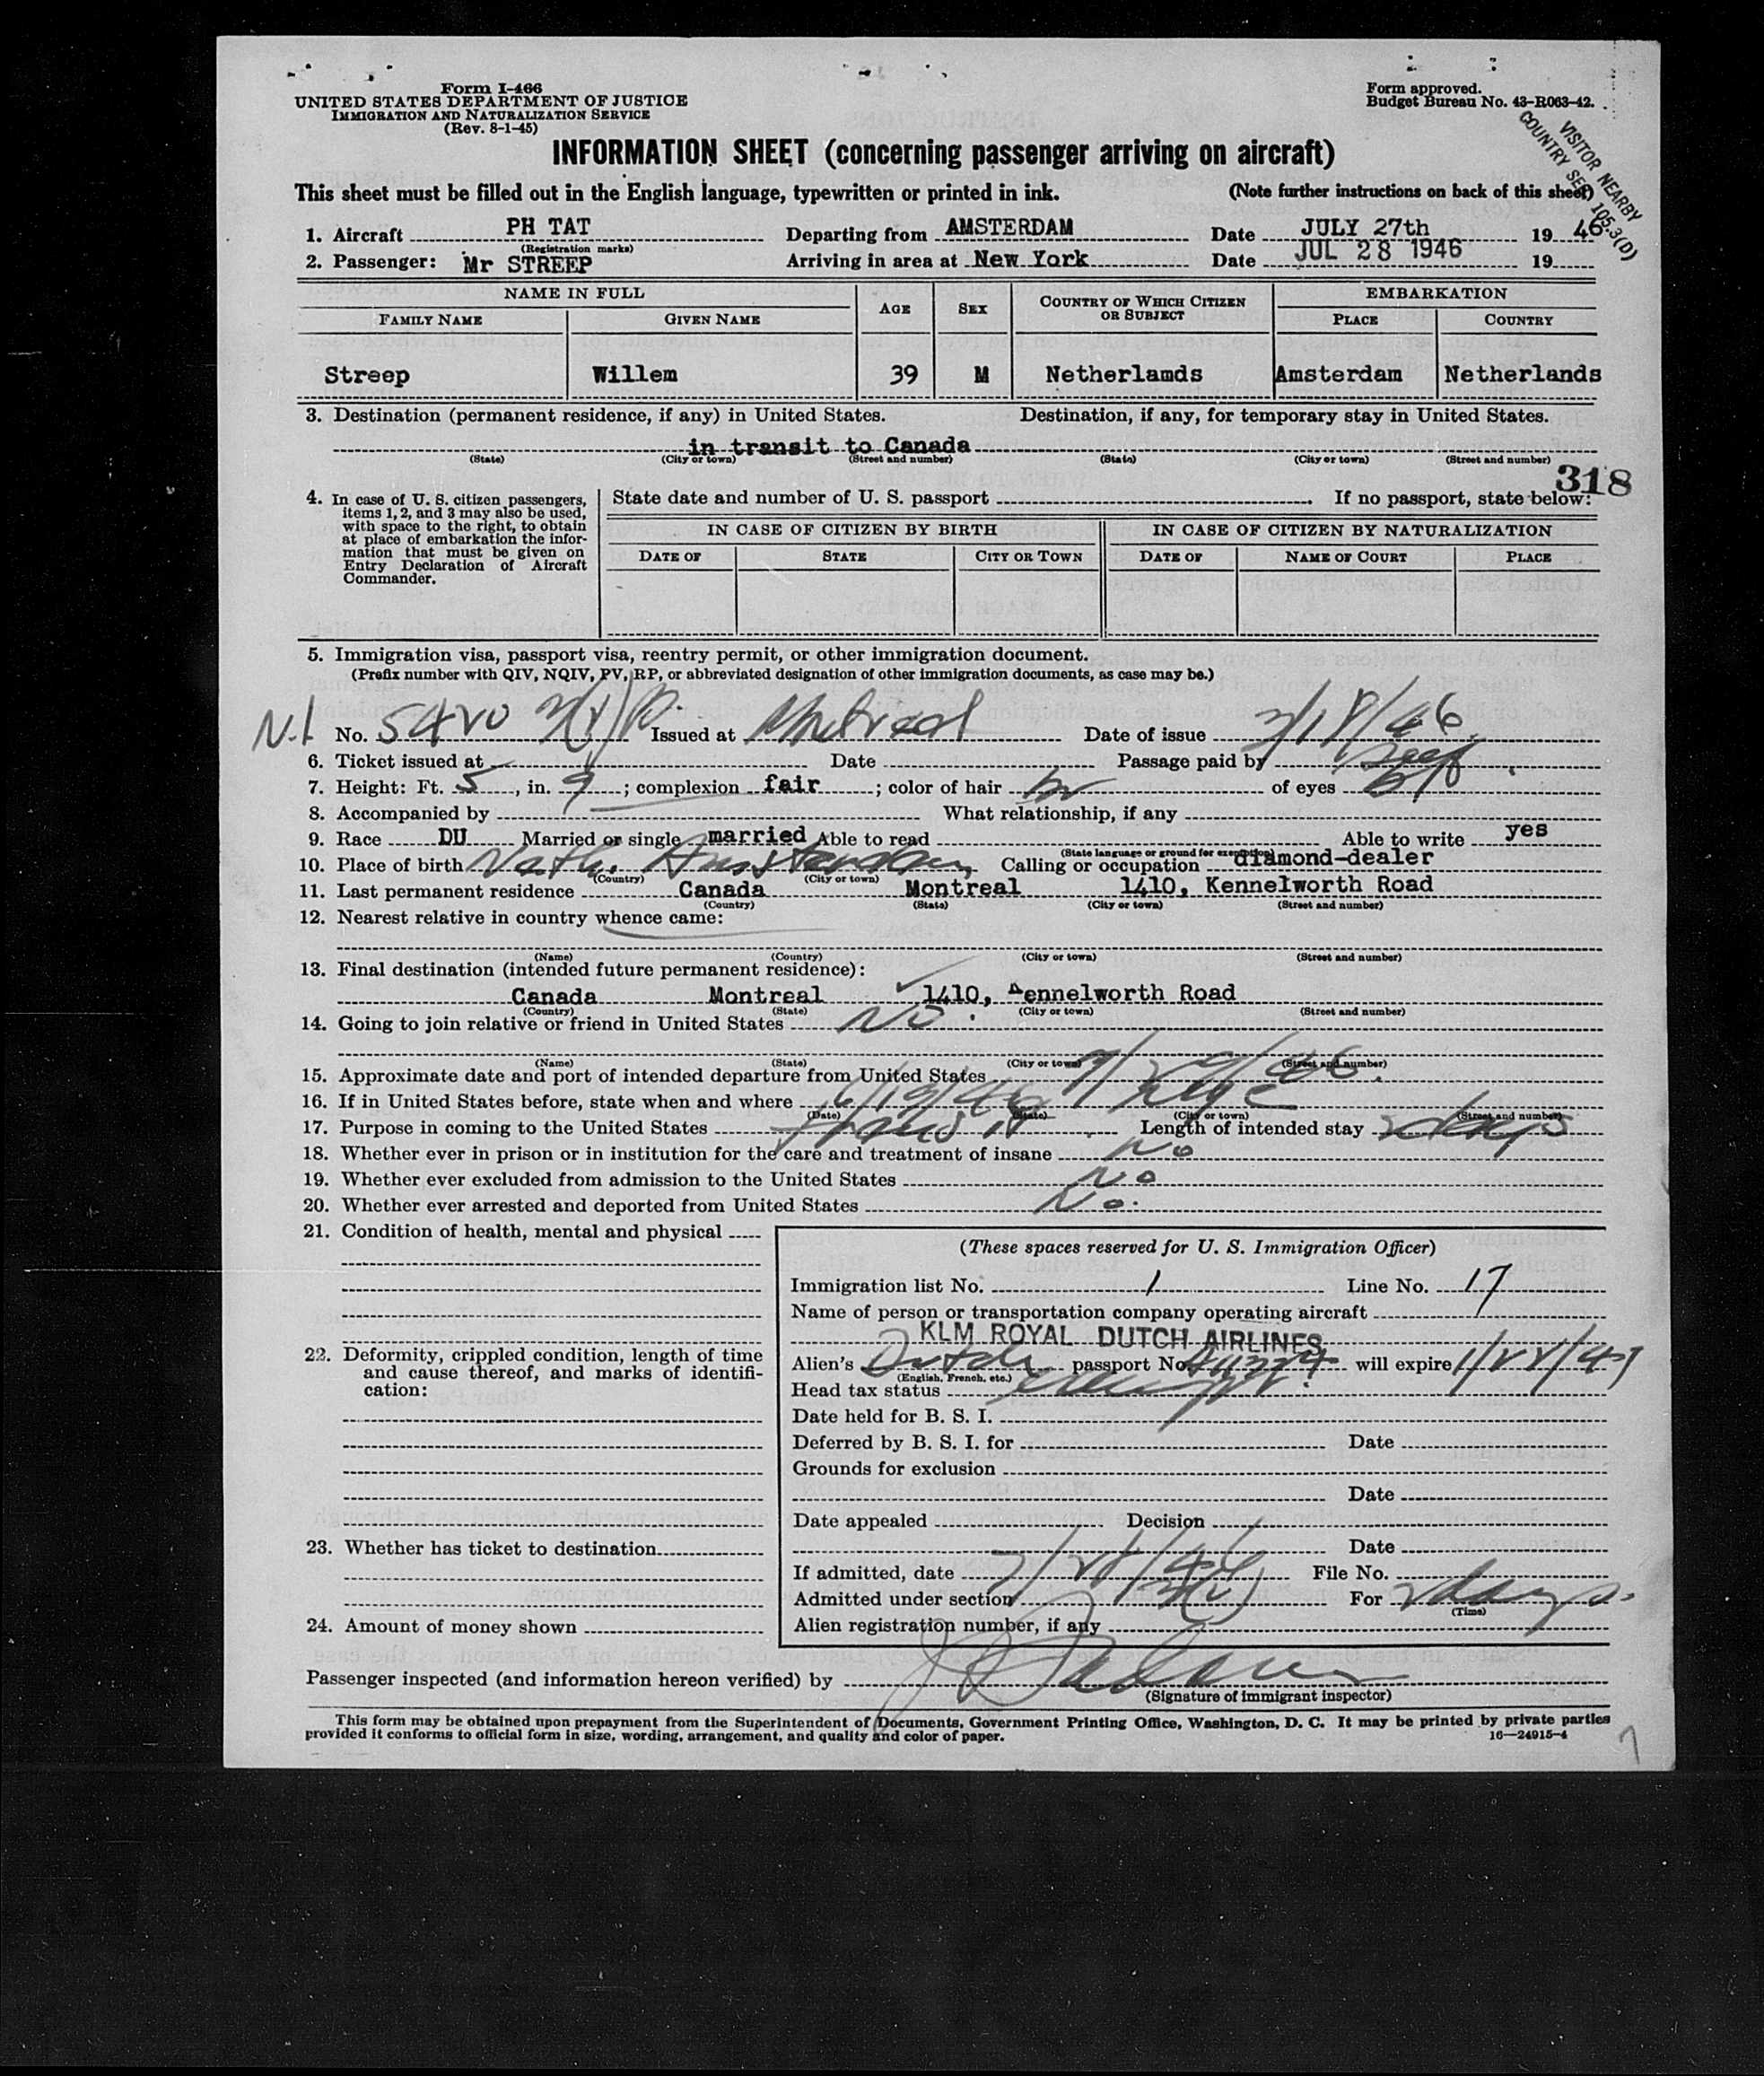 Form I-466
UNITED STATES DEPARTMENT OF JUSTICE
IMMIGRATION AND NATURALIZATION SERVICE
(Rev. 8-1-45)
Form approved.
Budget Bureau No. 43-R063-42.
VISITOR NEARBY
COUNTRY SEC 105.3(D)
INFORMATION SHEET (concerning passenger arriving on aircraft)
This sheet must be filled out in the English language, typewritten or printed in ink. (Note further instructions on back of this sheet)
1. Aircraft PH TAT Departing from AMSTERDAM Date JULY 27th 19 46
(Registration marks)
2. Passenger: Mr STREEP Arriving in area at New York Date JUL 28 1946 19
NAME IN FULL AGE SEX COUNTRY OF WHICH CITIZEN OR SUBJECT EMBARKATION
FAMILY NAME GIVEN NAME PLACE COUNTRY
Streep Willem 39 M Netherlamds Amsterdam Netherlands
3. Destination (permanent residence, if any) in United States. Destination, if any, for temporary stay in United States.
in transit to Canada
(State) (City or town) (Street and number) (State) (City or town) (Street and number)
318
4. In case of U. S. citizen passengers, items 1, 2, and 3 may also be used, with space to the right, to obtain at place of embarkation the information that must be given on Entry Declaration of Aircraft Commander.
State date and number of U. S. passport If no passport, state below:
IN CASE OF CITIZEN BY BIRTH IN CASE OF CITIZEN BY NATURALIZATION
DATE OF STATE CITY OR TOWN DATE OF NAME OF COURT PLACE
5. Immigration visa, passport visa, reentry permit, or other immigration document.
(Prefix number with QIV, NQIV, PV, RP, or abbreviated designation of other immigration documents, as case may be.)
No. Issued at Montreal Date of issue
6. Ticket issued at Date Passage paid by self
7. Height: Ft. 5, in. 9; complexion fair; color of hair br of eyes
8. Accompanied by What relationship, if any
9. Race DU Married or single married Able to read Able to write yes
(State language or ground for exemption)
10. Place of birth Neth. Amsterdam Calling or occupation diamond-dealer
(Country) (City or town)
11. Last permanent residence Canada Montreal 1410, Kennelworth Road
(Country) (State) (City or town) (Street and number)
12. Nearest relative in country whence came:
(Name) (Country) (City or town) (Street and number)
13. Final destination (intended future permanent residence):
Canada Montreal 1410, Kennelworth Road
(Country) (State) (City or town) (Street and number)
14. Going to join relative or friend in United States No.
(Name) (State) (City or town) (Street and number)
15. Approximate date and port of intended departure from United States 7/29/46.
16. If in United States before, state when and where 6/19/46 NYC
(Date) (State) (City or town) (Street and number)
17. Purpose in coming to the United States transit Length of intended stay 2 days
18. Whether ever in prison or in institution for the care and treatment of insane No
19. Whether ever excluded from admission to the United States No
20. Whether ever arrested and deported from United States No.
21. Condition of health, mental and physical
22. Deformity, crippled condition, length of time and cause thereof, and marks of identification:
23. Whether has ticket to destination
24. Amount of money shown
(These spaces reserved for U. S. Immigration Officer)
Immigration list No. 1 Line No. 17
Name of person or transportation company operating aircraft
KLM ROYAL DUTCH AIRLINES
Alien's Dutch passport No. will expire
(English, French, etc.)
Head tax status
Date held for B. S. I.
Deferred by B. S. I. for Date
Grounds for exclusion
Date
Date appealed Decision
Date
If admitted, date 7/28/46 File No.
Admitted under section For 2 days.
(Time)
Alien registration number, if any
Passenger inspected (and information hereon verified) by
(Signature of immigrant inspector)
This form may be obtained upon prepayment from the Superintendent of Documents, Government Printing Office, Washington, D. C. It may be printed by private parties
provided it conforms to official form in size, wording, arrangement, and quality and color of paper. 16—24915-4